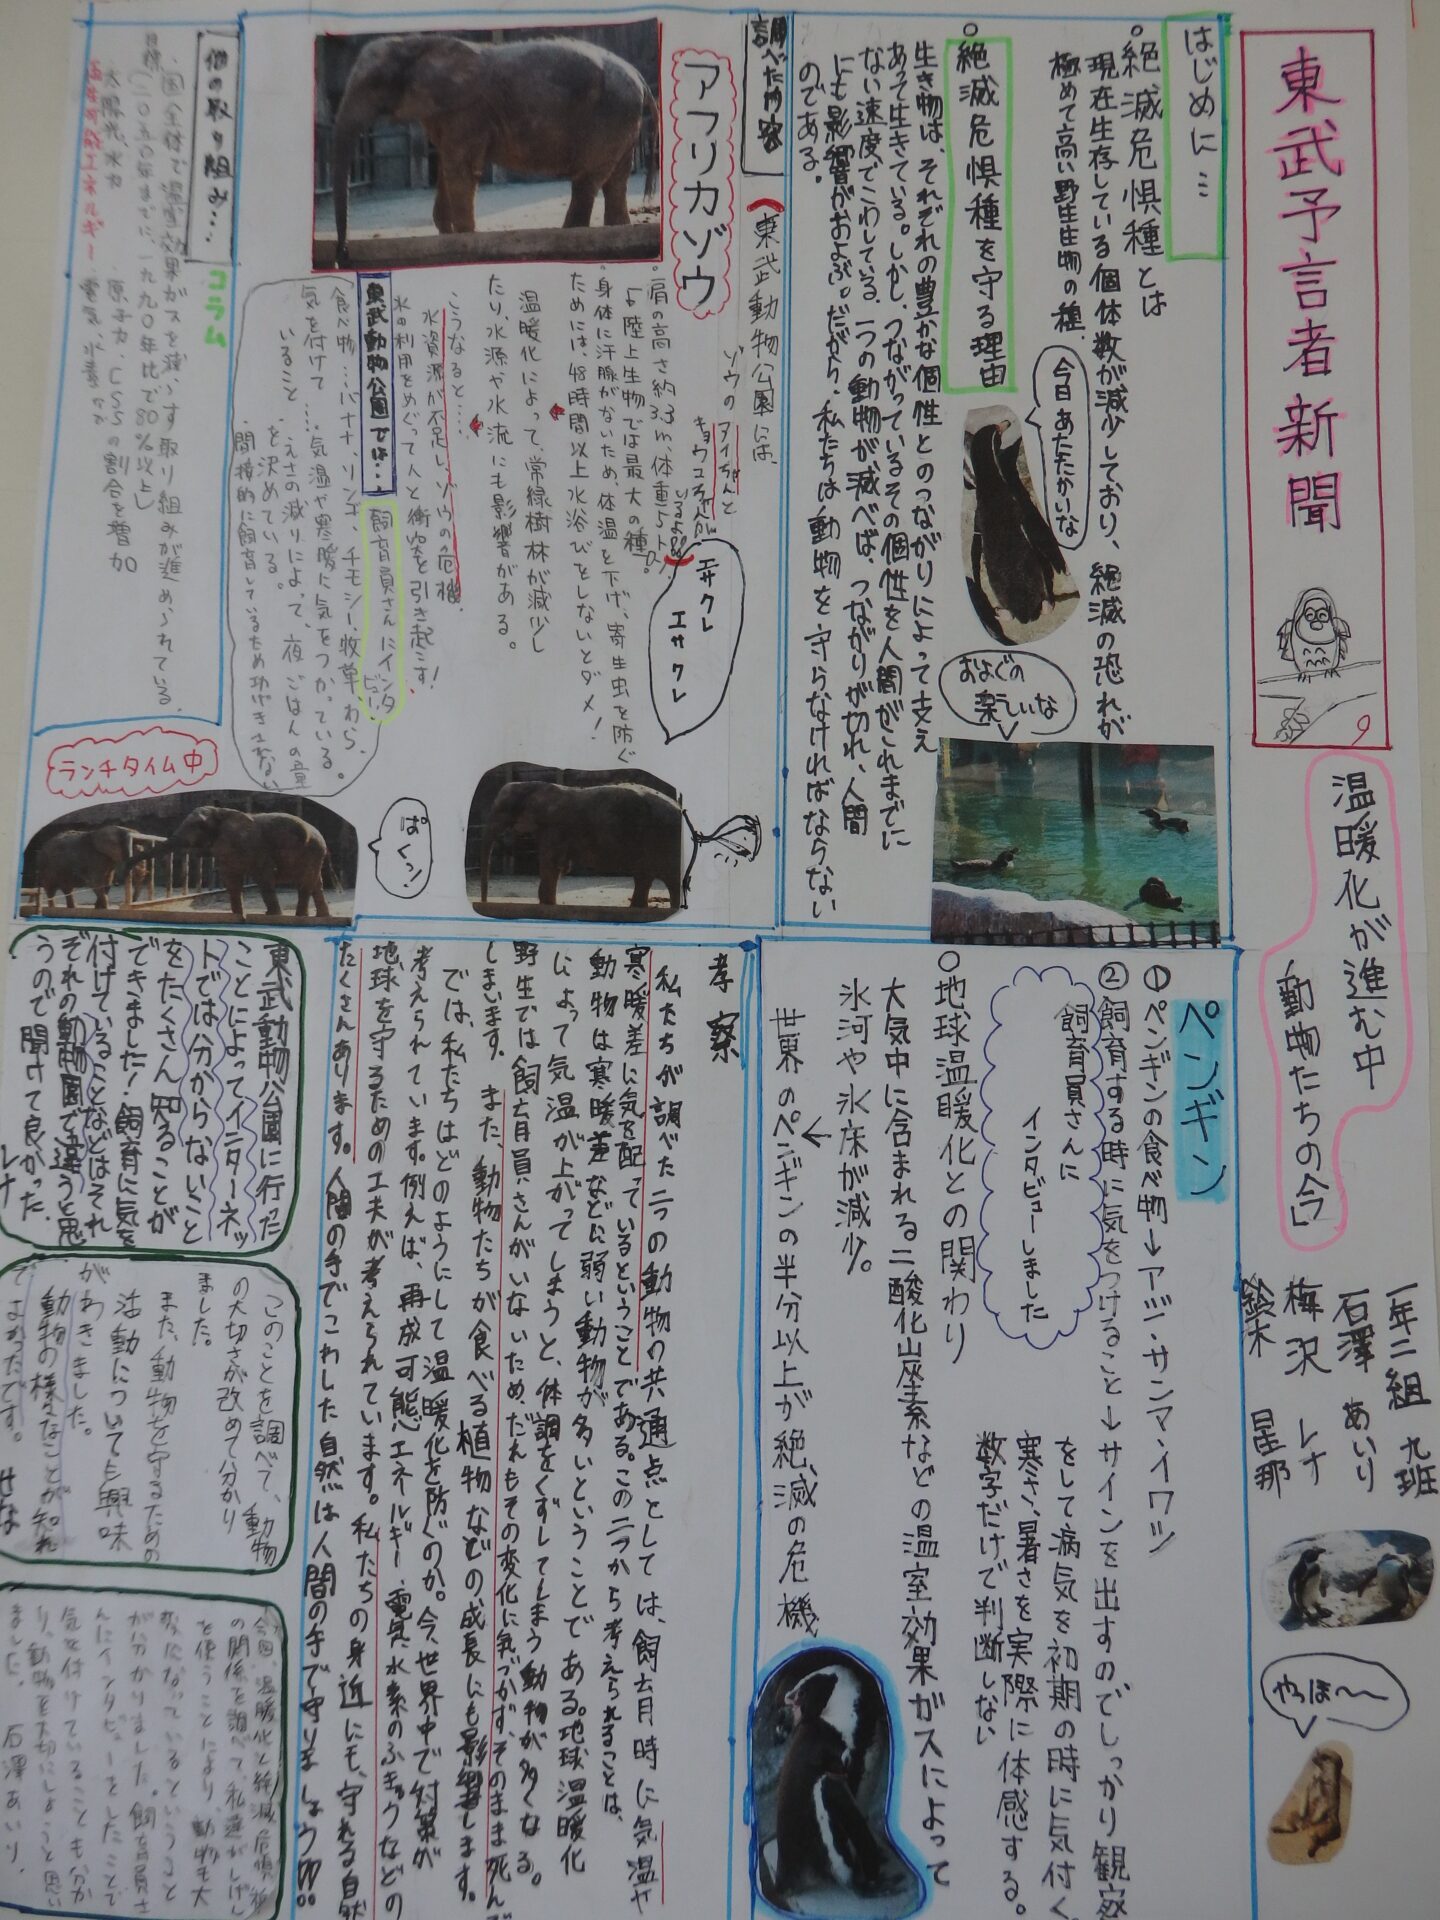 東武予言者新聞
温暖化が進む中
「動物たちの今」
一年二組 九班
石澤 あいり
梅沢 レナ
鈴木 星那
やっほ〜〜
はじめに…
○絶滅危惧種とは
現在生存している個体数が減少しており、絶滅の恐れが
極めて高い野生生物の種
今日あたたかいな
○絶滅危惧種を守る理由
およぐの
楽しいな
生き物は、それぞれの豊かな個性とのつながりによって支え
あって生きている。しかし、つながっているその個性を人間がこれまでに
ない速度でこわしている。一つの動物が減べば、つながりが切れ、人間
にも影響がおよぶ。だから、私たちは動物を守らなければならない
のである。
ペンギン
①ペンギンの食べ物→アジ・サンマ・イワシ
②飼育する時に気をつけること→サインを出すのでしっかり観察
をして病気を初期の時に気付く。
寒さ、暑さを実際に体感する。
数字だけで判断しない
飼育員さんに
インタビューしました
○地球温暖化との関わり
大気中に含まれる二酸化炭素などの温室効果ガスによって
氷河や氷床が減少。
↓
世界のペンギンの半分以上が絶滅の危機
調べた内容
東武動物公園には、
ゾウのアイちゃんと
キョウコちゃんが
いるよ!!
アフリカゾウ
・肩の高さ約3.3m、体重5t。
↳陸上生物では最大の種。
・身体に汗腺がないため、体温を下げ、寄生虫を防ぐ
ためには、48時間以上水浴びをしないとダメ!
温暖化によって、常緑樹林が減少し
たり、水源や水流にも影響がある。
こうなると…
水資源が不足し、ゾウの危機
水の利用をめぐって人と衝突を引き起こす!
エサクレ
エサクレ
東武動物公園では…
飼育員さんにインタビュー
食べ物…バナナ、リンゴ、チモシー、牧草、わら
気を付けて…気温や寒暖に気をつかっている。
いること
えさの減りによって、夜ごはんの量
を決めている。
ぱくっ!
ランチタイム中
他の取り組み…
コラム
・国全体で温室効果ガスを減らす取り組みが進められている。
目標(二〇五〇年までに、一九九〇年比で80%以上)
太陽光、水力
・原子力、CSSの割合を増加
再生可能エネルギー
電気、水素など
考察
私たちが調べた二つの動物の共通点としては、飼育時に気温や
寒暖差に気を配っているということである。この二つから考えられることは、
動物は寒暖差などに弱い動物が多いということである。地球温暖化
によって気温が上がってしまうと、体調をくずしてしまう動物が多くなる。
野生では飼育員さんがいないため、だれもその変化に気づかず、そのまま死んで
しまいます。また、動物たちが食べる植物などの成長にも影響します。
では、私たちはどのようにして温暖化を防ぐのか。今、世界中で対策が
考えられています。例えば、再成可能エネルギー、電気、水素のふきゅうなどの
地球を守るための工夫が考えられています。私たちの身近にも、守れる自然
たくさんあります。人間の手でこわした自然は人間の手で守りましょう!!!
東武動物公園に行った
ことによってインターネッ
トでは分からないこと
をたくさん知ることが
できました!飼育に気を
付けていることなどはそれ
ぞれの動物園で違うと思
うので聞けて良かった。
レナ
このことを調べて、動物
の大切さが改めて分かり
ました。
また、動物を守るための
活動について興味
がわきました。
動物の様々なことが知れ
てよかったです。 せな
今回、温暖化と絶滅危惧種
の関係を調べて、私達がしげん
を使うことにより、動物も大
変になっているということ
が分かりました。飼育員さ
んにインタビューをしたことで
気を付けていることも分か
り、動物を大切にしようと思い
ました。 石澤あいり